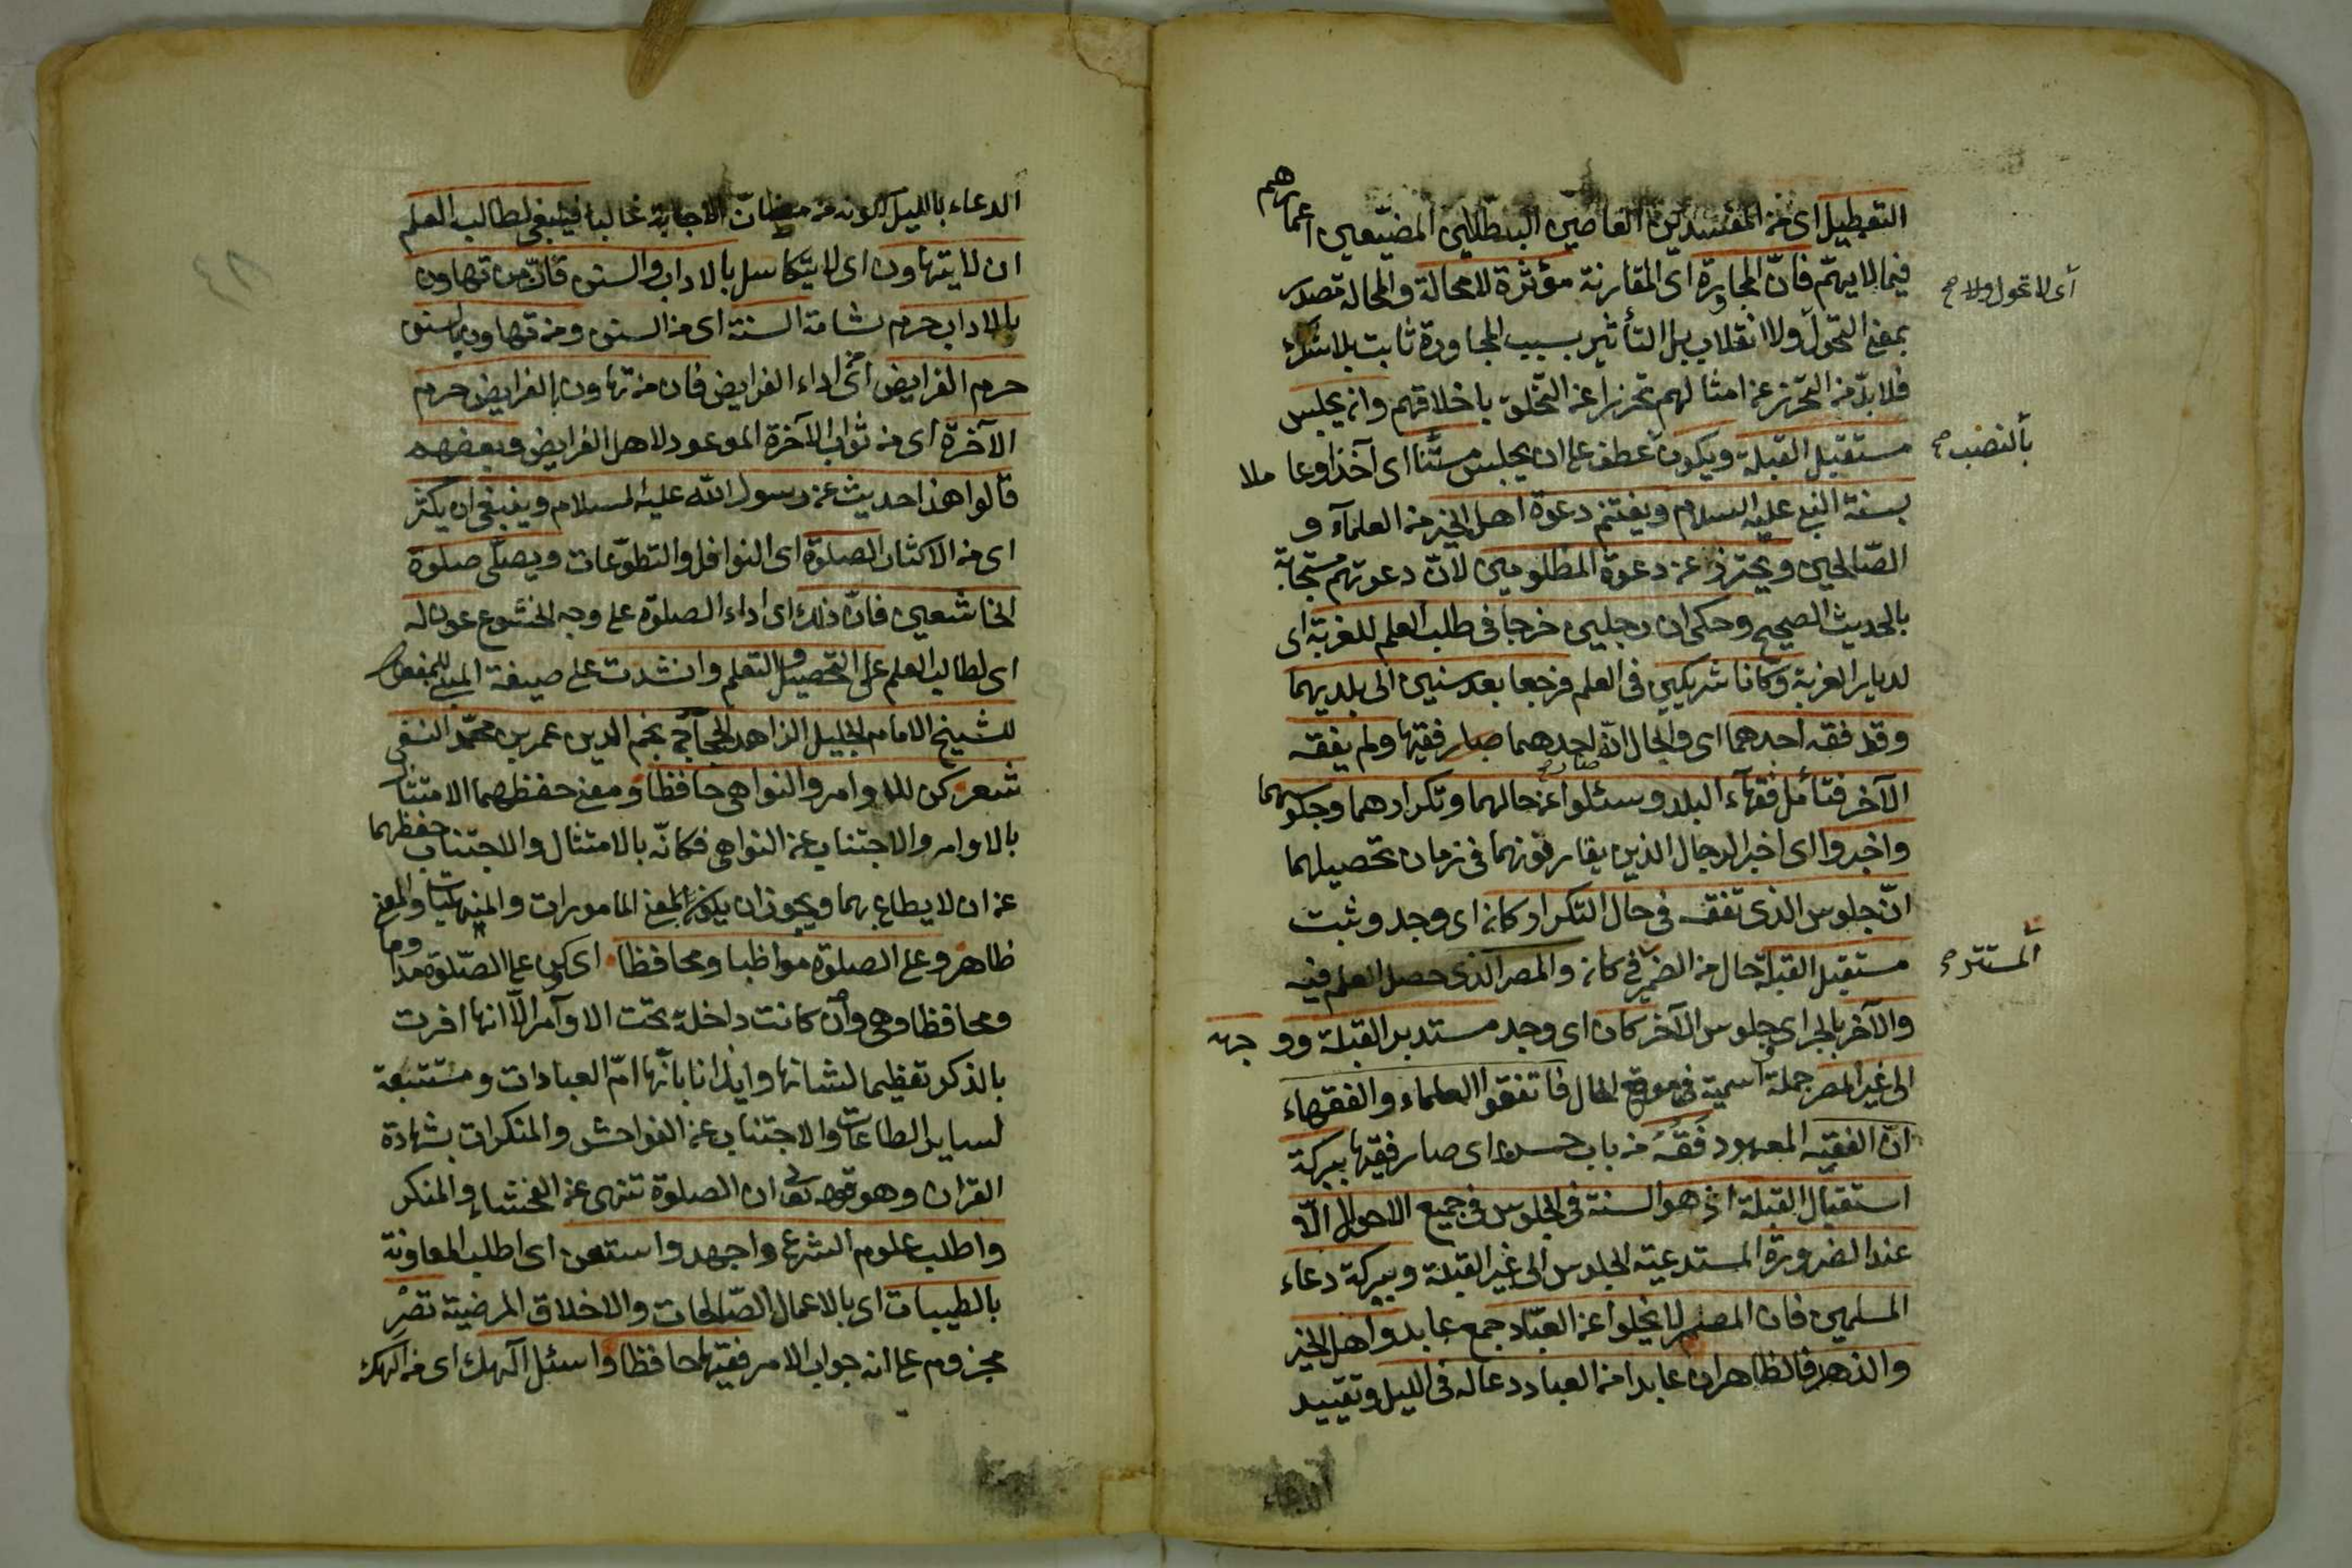 التعطيل اى من المفسدين العاصين البطالين المضيعين اعمارهم
فيما لا يهم فان المجاورة اى المقارنة مؤثرة لا محالة والمحالة مصدر
اى لا تحول ولا صح
بمعنى التحول ولا انقلاب بل التأثير بسبب المجاورة ثابت بلا شك
فلا بد من التحرز عن امثالهم تحرزا عن التخلق باخلاقهم وان يجلس
مستقبل القبلة ويكون عطف على ان يجلس مستنا اى آخذا وعاملا
بالنصب صح
بسنة النبى عليه السلام ويغتنم دعوة اهل الخير من العلماء و
الصالحين ويحترز عن دعوة المظلومين لان دعوتهم مستجابة
بالحديث الصحيح وحكى ان رجلين خرجا فى طلب العلم للغربة اى
لديار الغربة وكانا شريكين فى العلم فرجعا بعد سنين الى بلديهما
وقد فقه احدهما اى والحال ان احدهما صار فقيها ولم يفقه
الآخر فتأمل فقهاء البلد وسئلوا عن حالهما وتكرارهما وجلوسهما
واخبروا اى اخبر الرجال الذين يقارفونهما فى زمان تحصيلهما
ان جلوس الذى تفقه فى حال التكرار كان اى وجد وثبت
مستقبل القبلة حال من الضمير فى كان والمصر الذى حصل العلم فيه
المستتر صح
والآخر بالجر اى جلوس الآخر كان اى وجد مستدبر القبلة ووجهه
الى غير المصر جملة اسمية فى موقع الحال فاتفقوا العلماء والفقهاء
ان الفقيه المعهود فقه من باب حسن اى صار فقيها ببركة
استقبال القبلة اذ هو السنة فى الجلوس فى جميع الاحوال الا
عند الضرورة المستدعية الجلوس الى غير القبلة وببركة دعاء
المسلمين فان المصر لا يخلوا عن العباد جمع عابد واهل الخير
والزهد فالظاهر ان عابدا من العباد دعا له فى الليل وتقييد
الدعاء
الدعاء بالليل لكونه من مظان الاجابة غالبا فينبغى لطالب العلم
ان لا يتهاون اى لا يتكاسل بالاداب والسنن فان من تهاون
بالاداب حرم بشامة السنة اى من السنن ومن تهاون بالسنن
حرم الفرايض اى اداء الفرايض فان من تهاون بالفرايض حرم
الآخرة اى من ثواب الآخرة الموعود لاهل الفرايض وبعضهم
قالوا هذا حديث عن رسول الله عليه السلام وينبغى ان يكثر
اى من الاكثار الصلوة اى النوافل والتطوعات ويصلى صلوة
الخاشعين فان ذلك اى اداء الصلوة على وجه الخشوع عون له
اى لطالب العلم على التحصيل والتعلم وانشدت على صيغة المبنى للمفعول
للشيخ الامام الجليل الزاهد الحجاجى نجم الدين عمر بن محمد النسفى
شعر كن للاوامر والنواهى حافظا ومعنى حفظهما الامتثال
بالاوامر والاجتناب عن النواهى فكانه بالامتثال والاجتناب حفظهما
عن ان لا يطاع بهما ويجوز ان يكونا بمعنى المامورات والمنهيات والمعنى
ظاهر وعلى الصلوة مواظبا ومحافظا اى كن على الصلوة مداوما
ومحافظا وهى وان كانت داخلة تحت الاوامر الا انها افردت
بالذكر تعظيما لشانها وايذانا بانها ام العبادات ومستتبعة
لساير الطاعات والاجتناب عن الفواحش والمنكرات بشهادة
القران وهو قوله تعالى ان الصلوة تنهى عن الفحشاء والمنكر
واطلب علوم الشرع واجهد واستعن اى اطلب المعاونة
بالطيبات اى بالاعمال الصالحات والاخلاق المرضية تصر
مجزوم على انه جواب الامر فقيها حافظا واسئل آلهك اى من الهك
٤٨